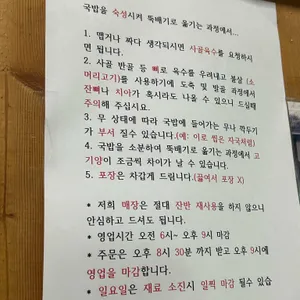 국밥을 숙성시켜 뚝배기로 옮기는 과정에서...
1. 맵거나 짜다 생각되시면 사골육수를 요청하시
면 됩니다.
2. 사골 반골 등 뼈로 육수를 우려내고 볼살 (소
머리고기)를 사용하기에 도축 및 발골 과정에서
잔뼈나 치아가 혹시라도 나올 수 있으니 드실때
주의해 주십시요.
3. 무 상태에 따라 국밥에 들어가는 무나 깍두기
가 부서 질수 있습니다.(예: 이로 씹은 자국처럼)
4. 국밥을 소분하여 뚝배기로 옮기는 과정에서 고
기양이 조금씩 차이가 날 수 있습니다.
5. 포장은 차갑게 드립니다.(끓여서 포장 X)
* 저희 매장은 절대 잔반 재사용을 하지 않으니
안심하고 드셔도 됩니다.
* 영업시간 오전 6시~ 오후 9시
* 주문은 오후 8시 30분 까지 받고 오후 9시에
영업을 마감합니다.
* 일요일은 재료 소진시 일찍 마감 될수 있습